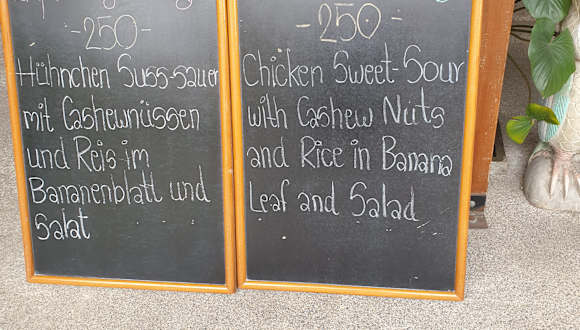 -250-
Hühnchen Süss-sauer
mit Cashewnüssen
und Reis im
Bananenblatt und
Salat
-250-
Chicken Sweet-Sour
with Cashew Nuts
and Rice in Banana
Leaf and Salad